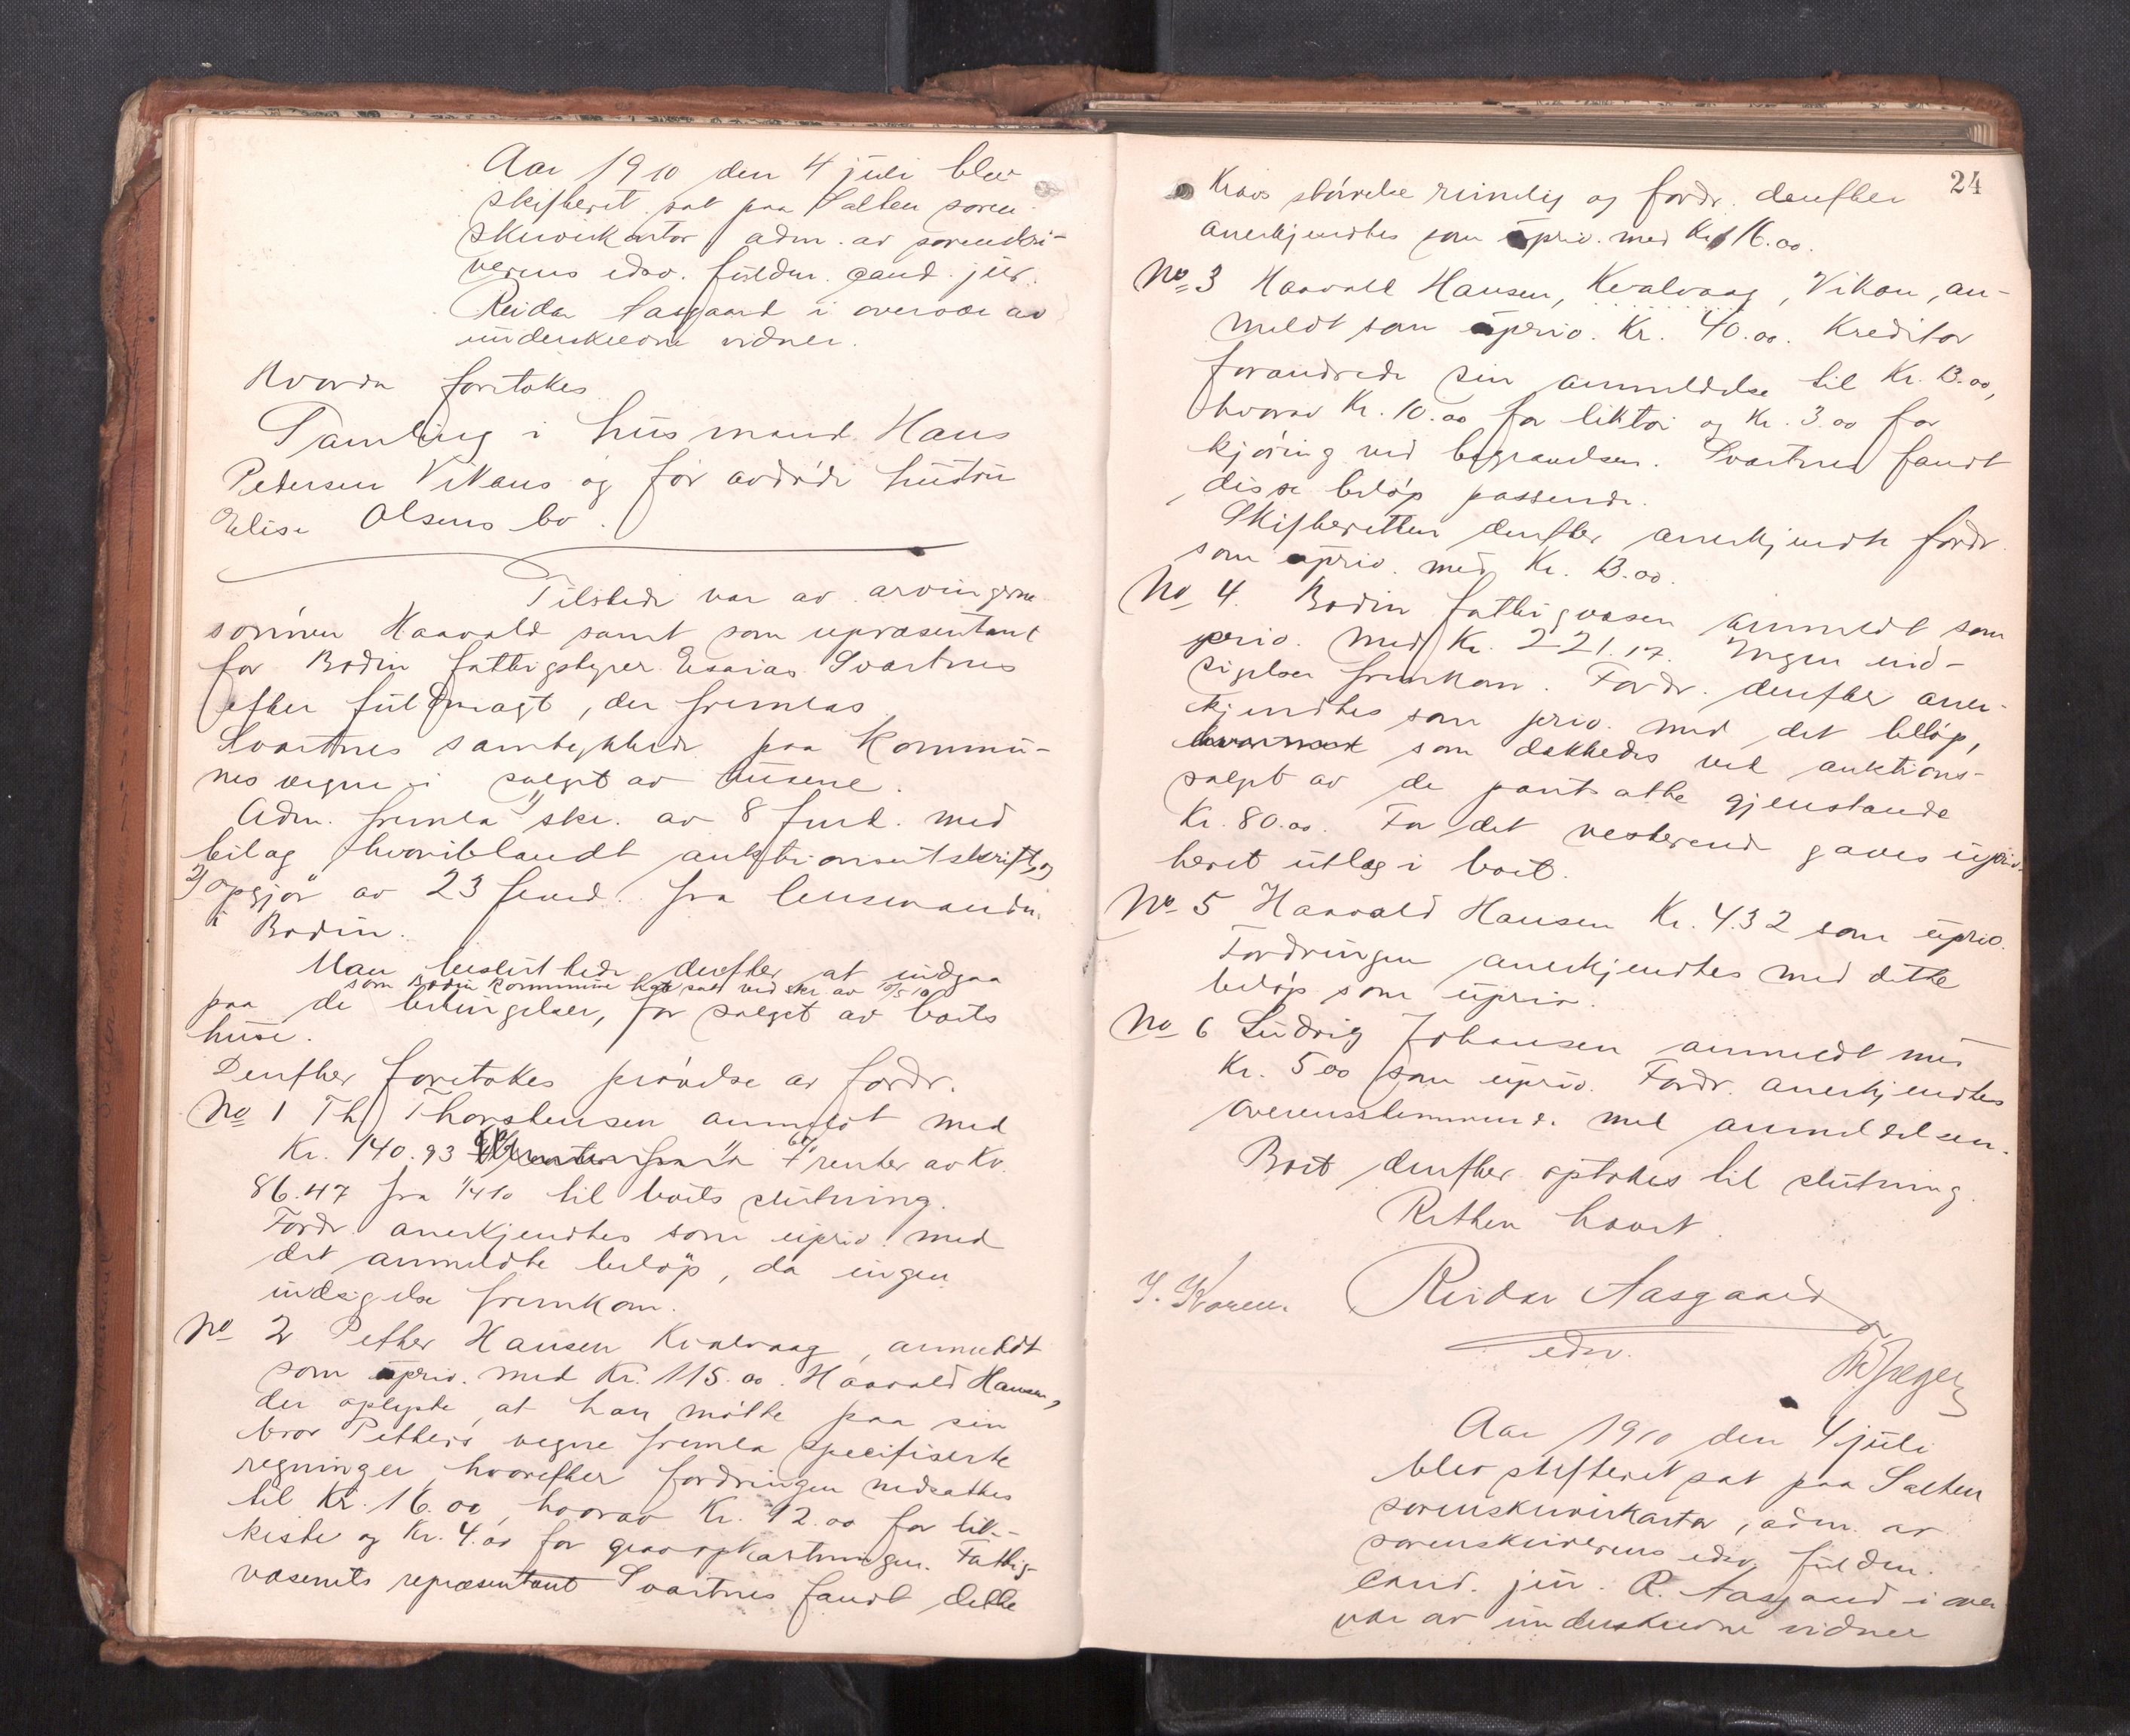 Aar 1910 den 4 juli blev
skifteret sat paa Salten soren
skriverkontor adm. av sorenskri-
verens edsv. fuldm. cand. jur.
Reidar Aasgaard i overvær av
underskrevne vidner.
Hvorda foretokes
Samling i husmand Hans
Pedersen Vikans og før avdøde hustru
Elise Olsens bo.
Tilstede var av arvingerne
sønnen Haavald samt som repræsentant
for Bodin fattigstyre Esaias Svartnes
efter fuldmagt, der fremlas.
Svartnes samtykkede paa Kommu-
nes vegne i salget av husene.
Adm. fremla 1/ skr. av 8 f md. med
bilag hvoriblandt auktionsutskrift, og
2/ opgjør av 23 f md. fra lensmanden
i Bodin.
Man besluttede derefter at indgaa
som Bodin Kommune har sat ved skr av 10/5 10
paa de betingelser, for salget av boets
huse.
Derefter foretokes prøvelse av fordr.
No 1 Th Thorstensen anmeldt med
Kr. 140.93 + 6% renter av Kr.
86.47 fra 1/4 10 til boets slutning.
Fordr. anerkjendtes som upriv. med
det anmeldte beløp, da ingen
indsigelse fremkom.
No 2 Petter Hansen Kvalvaag, anmeldt
som upriv. med Kr. 115.00. Haavald Hansen,
der oplyste, at han møtte paa sin
bror Petters vegne fremla specifiserte
regninger, hvorefter fordringen nedsattes
til Kr. 16.00, hvorav Kr. 12.00 for lik-
kiste og Kr. 4.00 for gravopkastningen. Fattig-
væsenets repræsentant Svartnes fandt dette
24
Kravs størrelse rimelig og fordr. derefter
anerkjendtes som upriv. med Kr 16.00.
No 3 Haavald Hansen, Kvalvaag, Vikan, an-
meldt som upriv. Kr. 40.00. Kreditor
forandrede sin anmeldelse til Kr. 13.00,
hvorav Kr. 10.00 for liktøi og Kr. 3.00 for
kjøring ved begravelsen. Svartnes fandt
disse beløp passende.
Skifteretten derefter anerkjendte fordr.
som upriv. med Kr. 13.00.
No 4. Bodin fattigvæsen anmeldt som
priv. med Kr. 221.17. Ingen ind-
sigelser fremkom. Fordr. derefter aner-
kjendtes som priv. med det beløp,
som dækkedes ved auktions-
salget av de pantsatte gjenstande
Kr. 80.00. For det resterende gaves upriv-
teret utlæg i boet.
No 5 Haavald Hansen Kr. 4.32 som upriv.
Fordringen anerkjendtes med dette
beløp som upriv.
No 6 Ludvig Johansen anmeldt med
Kr. 5 00 som upriv. Fordr. anerkjendtes
overensstemmende med anmeldelsen.
Boet derefter optokes til slutning.
Retten hævet.
Reidar Aasgaard
edsv.
Aar 1910 den 4 juli
blev skifteret sat paa Salten
sorenskriverkontor, adm. av
sorenskriverens edsv. fuldm.
cand. jur. R. Aasgaard i over
vær av underskrevne vidner